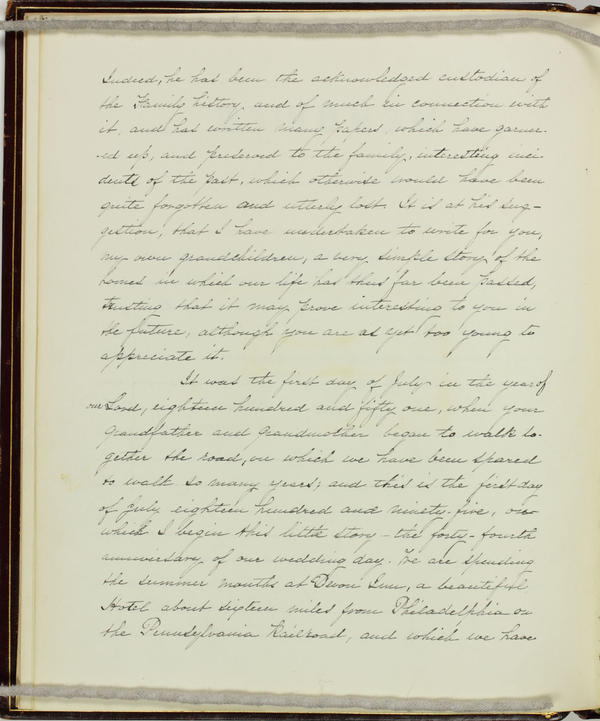 Indeed, he has been the acknowledged custodian of
the Family history, and of much in connection with
it, and has written many papers, which have garner-
-ed up, and preserved to the family, interesting inci-
dents of the past, which otherwise would have been
quite forgotten and utterly lost. It is at his sug-
gestion, that I have undertaken to write for you,
my own grandchildren, a very simple story of the
homes in which our life has thus far been passed,
trusting that it may prove interesting to you in
the future, although you are as yet too young to
appreciate it.
It was the first day of July in the year of
our Lord, eighteen hundred and fifty one, when your
Grandfather and Grandmother began to walk to-
gether the road, on which we have been spared
to walk so many years; and this is the first day
of July eighteen hundred and ninety-five, on
which I begin this little story - the forty-fourth
anniversary of our wedding day. We are spending
the summer months at Devon Inn, a beautiful
Hotel about sixteen miles from Philadelphia on
the Pennsylvania Railroad, and which we have